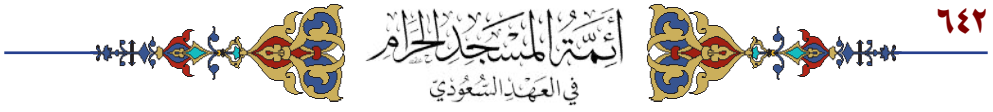 ٦٤٢
أَئِمَّةُ المَسْجِدِ الحَرَامِ
في العَهْدِ السُّعُودِيّ